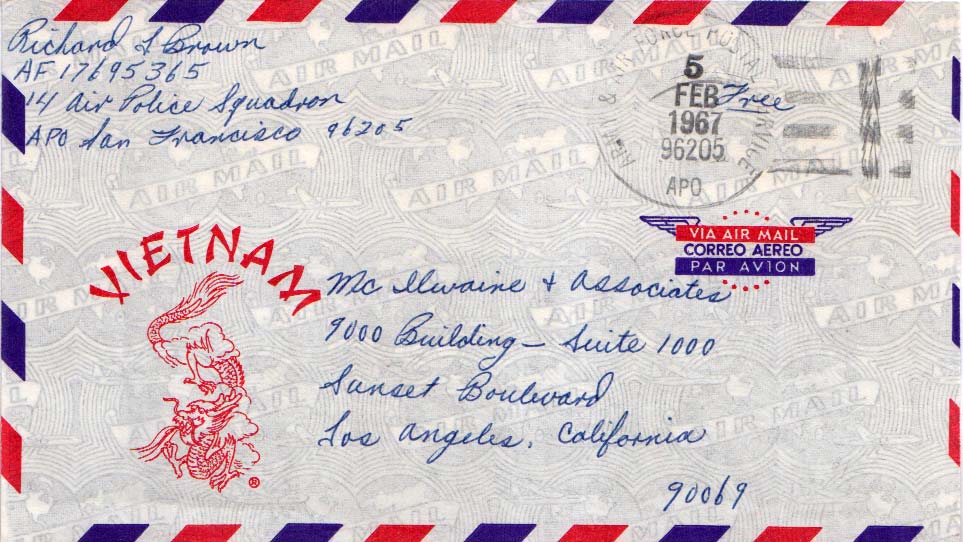 Richard L Brown
AF 17695365
14 Air Police Squadron
APO San Francisco 96205
ARMY & AIR FORCE POSTAL SERVICE
5
FEB
1967
96205
APO
Free
VIA AIR MAIL
CORREO AEREO
PAR AVION
VIETNAM
®
Mc Ilwaine & Associates
9000 Building - Suite 1000
Sunset Boulevard
Los Angeles, California
90069
AIR MAIL